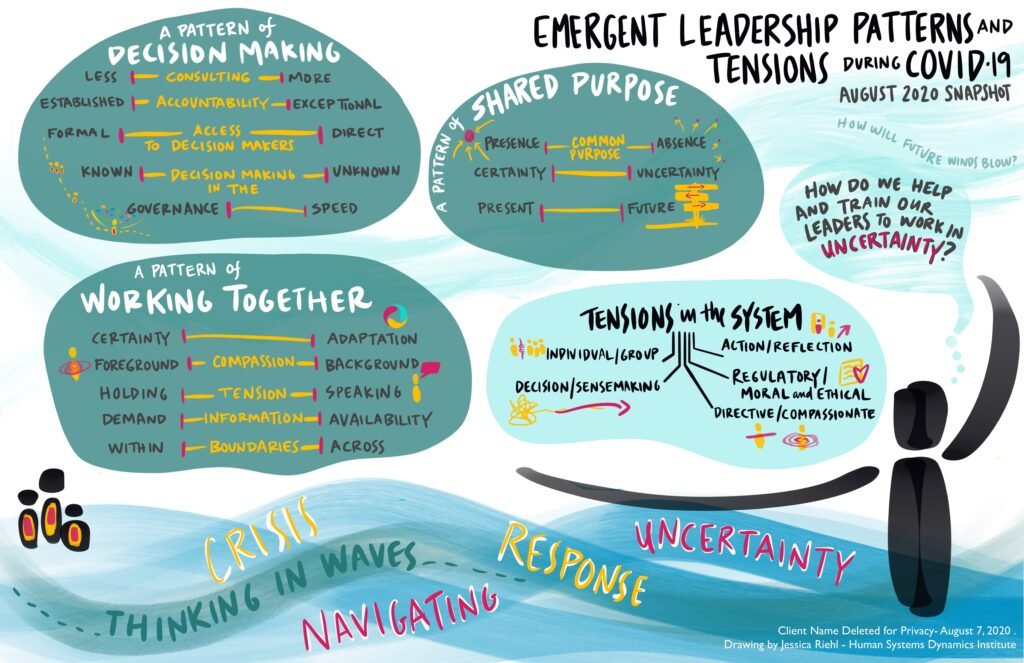 EMERGENT LEADERSHIP PATTERNS AND
TENSIONS DURING COVID-19
AUGUST 2020 SNAPSHOT
A PATTERN of
DECISION MAKING
LESS CONSULTING MORE
ESTABLISHED ACCOUNTABILITY EXCEPTIONAL
FORMAL ACCESS TO DECISION MAKERS DIRECT
KNOWN DECISION MAKING IN THE UNKNOWN
GOVERNANCE SPEED
A PATTERN of
SHARED PURPOSE
PRESENCE COMMON PURPOSE ABSENCE
CERTAINTY UNCERTAINTY
PRESENT FUTURE
HOW WILL FUTURE WINDS BLOW?
HOW DO WE HELP
AND TRAIN OUR
LEADERS TO WORK IN
UNCERTAINTY?
A PATTERN of
WORKING TOGETHER
CERTAINTY ADAPTATION
FOREGROUND COMPASSION BACKGROUND
HOLDING TENSION SPEAKING
DEMAND INFORMATION AVAILABILITY
WITHIN BOUNDARIES ACROSS
TENSIONS in the SYSTEM
INDIVIDUAL/GROUP
ACTION/REFLECTION
DECISION/SENSEMAKING
REGULATORY/
MORAL AND ETHICAL
DIRECTIVE/COMPASSIONATE
CRISIS
RESPONSE
UNCERTAINTY
THINKING IN WAVES
NAVIGATING
Client Name Deleted for Privacy- August 7, 2020 .
Drawing by Jessica Riehl - Human Systems Dynamics Institute